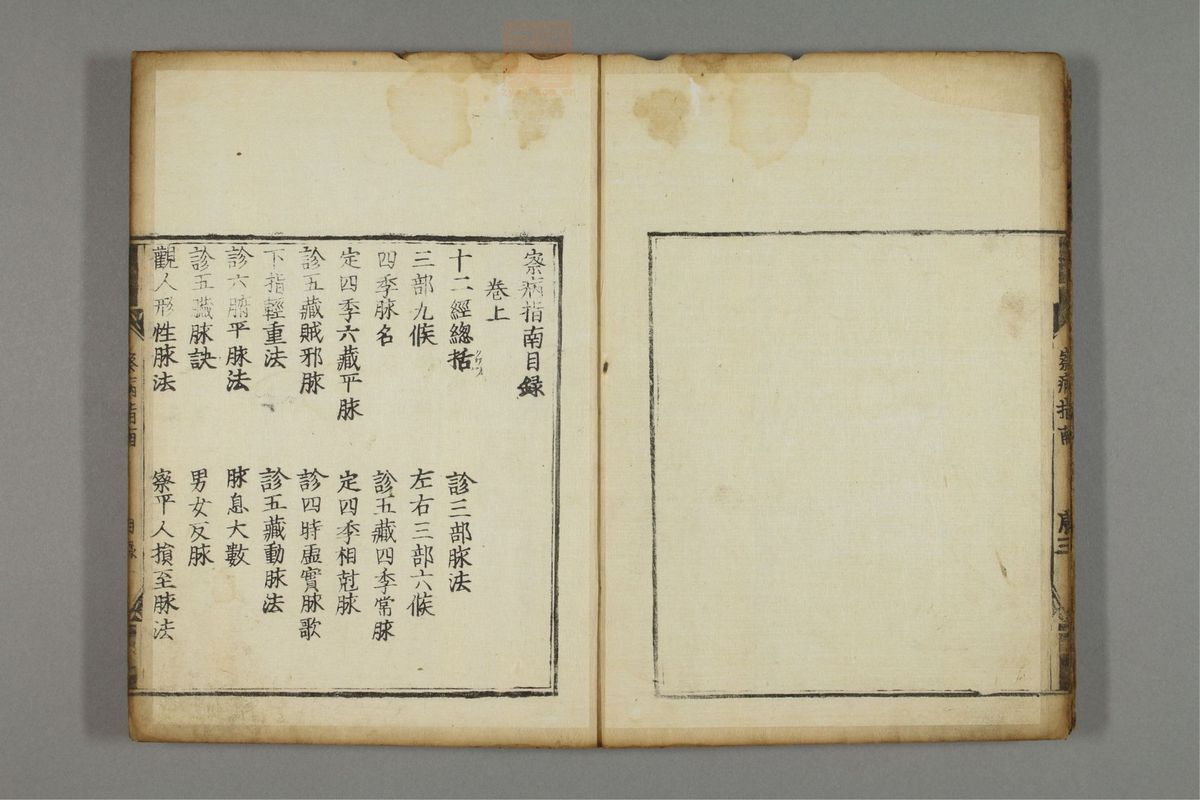 察病指南目錄
卷上
十二經總括
診三部脉法
三部九候
左右三部六候
四季脉名
診五藏四季常脉
定四季六藏平脉
定四季相尅脉
診五藏賊邪脉
診四時虛實脉歌
下指輕重法
診五藏動脉法
診六腑平脉法
脉息大數
診五臟脉訣
男女反脉
觀人形性脉法
察平人損至脉法
察病指南
目錄
察病指南